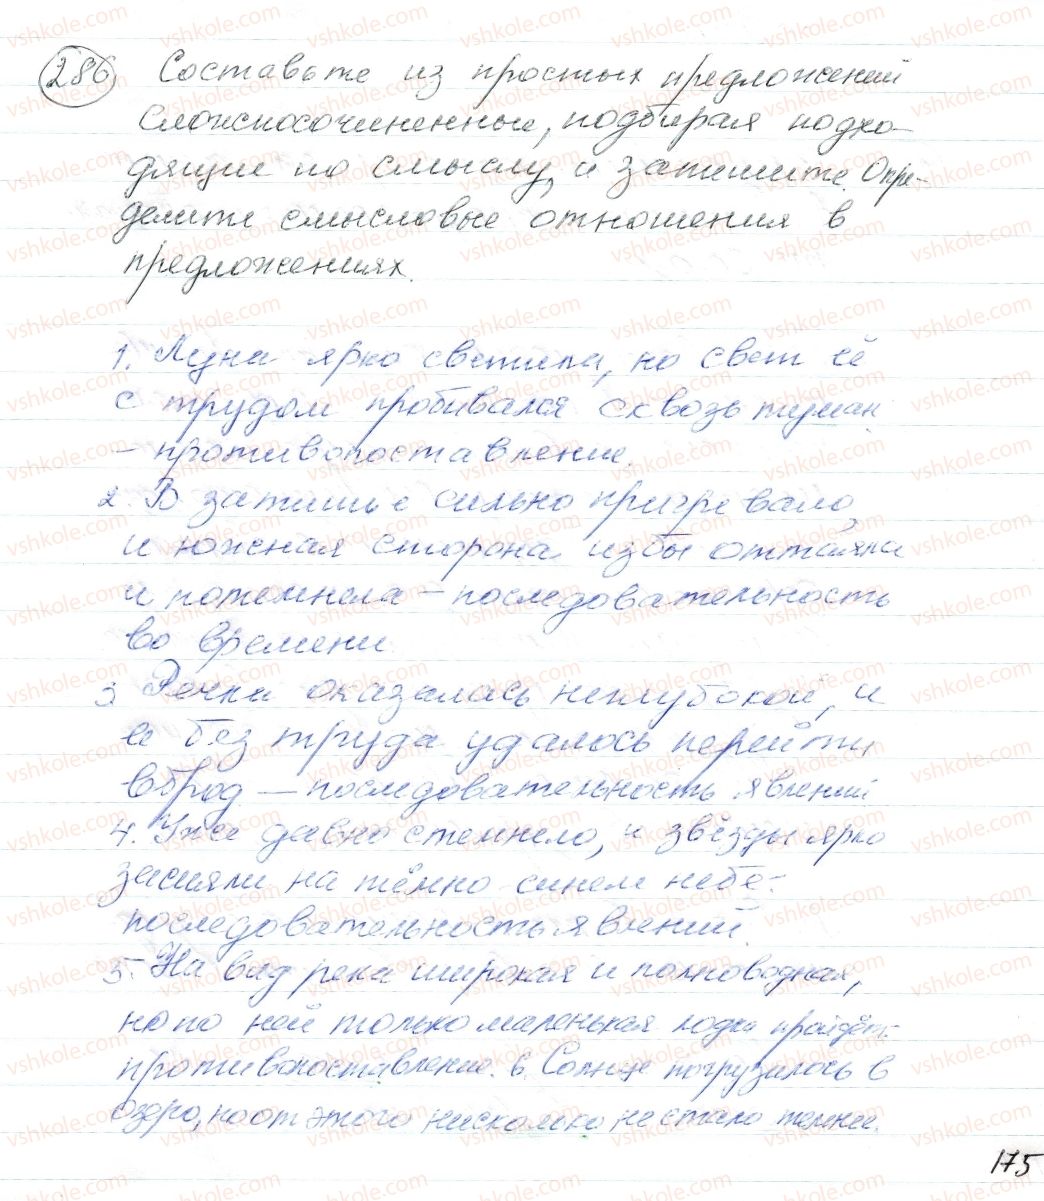 286 Составьте из простых предложений
сложносочиненные, подбирая подхо-
дящие по смыслу, и запишите. Опре-
делите смысловые отношения в
предложениях.
1. Луна ярко светила, но свет её
с трудом пробивался сквозь туман.
- противопоставление.
2. В затишье сильно пригревало,
и южная сторона избы оттаяла
и потемнела - последовательность
во времени
3 Речка оказалась неглубокой, и
её без труда удалось перейти
вброд - последовательность явлений
4. Уже давно стемнело, и звёзды ярко
засияли на тёмно синем небе -
последовательность явлений.
5. На вид река широкая и полноводная,
но по ней только маленькая лодка пройдёт -
противопоставление. 6. Солнце погрузилось в
озеро, но от этого нисколько не стало темнее.
175